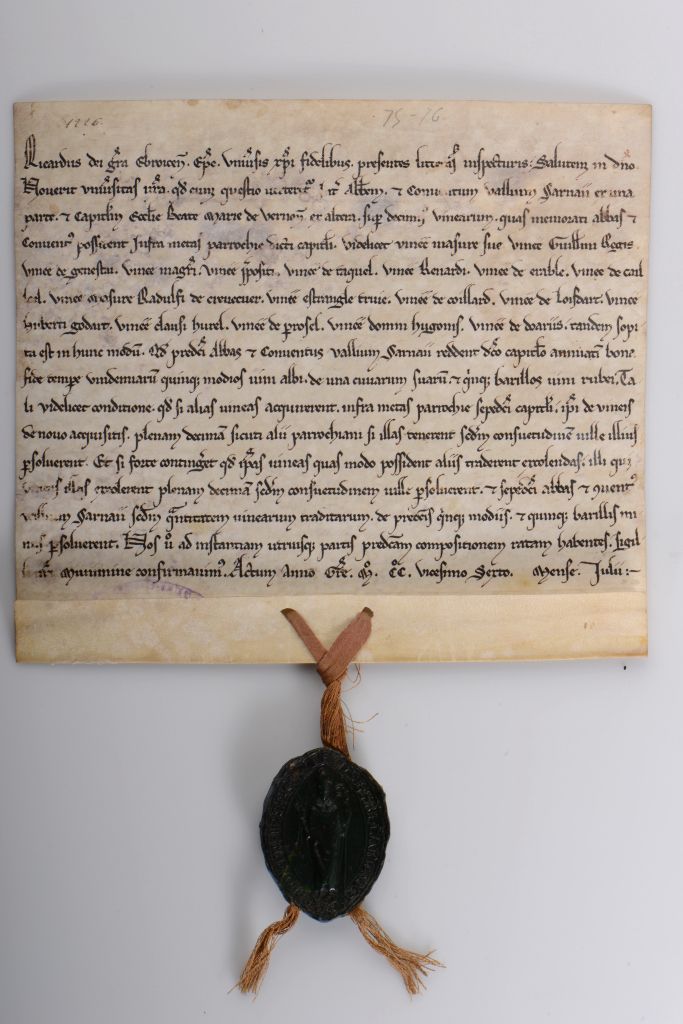 1226. 75-76
Ricardus dei gr̃a Ebroicen̄. Ep̃c. Vniũsis xp̃i fidelibus. presentes litteras inspecturis. Salutem in dño
Nouerit vniũsitas ur̃a. qd̃ cum questio inter Abb̃em. & Conuentum vallium Sarnaii ex una
parte. & Capitlm̃ Ecclie Beate Marie de vernon̄ ex altera. sup̃ decimis vinearum. quas memorati abbas &
Conuentꝰ possident infra metas parrochie dicti capitli. videlicet vinee masure sue vinee Guillmi Regis
vinee de genestai. vinee magr̃i. vinee p̃positi. vinee de triquel. vinee Renardi. vinee de erable. vinee de cail
vinee Masure Radulfi de creuecuer. vinee estrangle truie. vinee de coillard. vinee de loisdart. vinee
huberti godart. vinee clausi hurel. vinee de ꝑrosel. vinee domni hygonis. vinee de doariis. tandem sopi
ta est in hunc modũ. Qd̃ predc̃i Abbas & Conuentus vallium Sarnaii reddent dc̃o capitlo annuatĩ bona
fide tempe vindemiarũ quinqꝫ modios uini albi. de una cuuarum suarũ. & q̃nqꝫ barillos uini rubei. Ta
li videlicet conditione. qd̃ si alias uineas acquirerent. infra metas parrochie sepedc̃i capitli. ip̃i de vineis
de nouo acquisitis. plenam decimã sicuti alii parrochiani si illas tenerent scd̃m consuetudinẽ uille illius
ꝑsoluerent. Et si forte contingẽt qd̃ ip̃as uineas quas modo possident aliis traderent excolendas. illi qui
uineas illas excolerent plenam decimã scd̃m consuetudinem uille ꝑsoluerent. & sepedc̃i abbas & ꝯuentꝰ
vallium Sarnaii scd̃m q̃ntitatem uinearum traditarum. de predc̃is q̃nqꝫ modiis. & quinqꝫ barillis mi
nus ꝑsoluerent. Nos ũ ad instantiam utriusqꝫ partis predc̃am compositionem ratam habentes. sigil
li nr̃i Munimine confirmauimꝰ. Actum Anno Gr̃e. M̊. C̊C. vicesimo Sexto. Mense. Julii:~